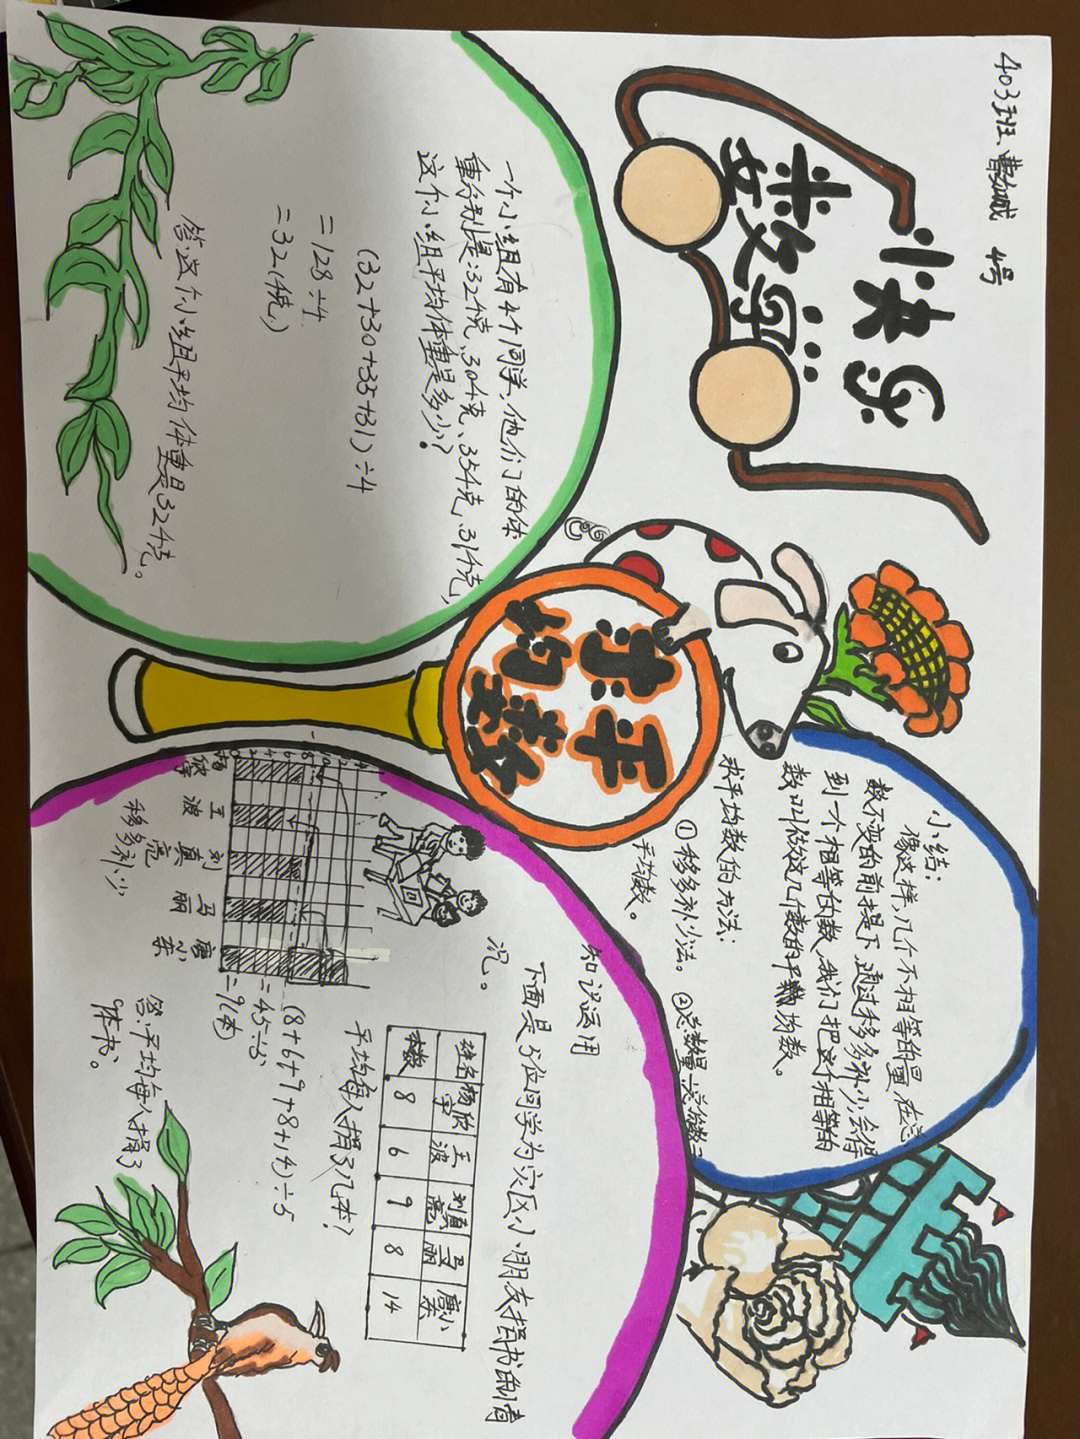 403班、曹 城 4号
快乐
数学
求平均数
一个小组有4个同学,他们的体
重分别是:32千克、30千克、35千克、31千克,
这个小组平均体重是多少?
(32+30+35+31)÷4
=128÷4
=32(千克)
答:这个小组平均体重是32千克。
小结:
像这样,几个不相等的量,在总
数不变的前提下,通过移多补少,会得
到一个相等的数,我们把这个相等的
数叫做这几个数的平均数。
求平均数的方法:
①移多补少法。 ②总数量÷总份数=
平均数。
知识运用
下面是5位同学为灾区小朋友捐书的情
况。
姓名 杨欣宇 王波 刘真亮 马丽 唐小东
本数 8 6 9 8 14
平均每人捐了几本?
(8+6+9+8+14)÷5
=45÷5
=9(本)
答:平均每人捐了
9本书。
0 2 4 6 8
杨欣宇 王波 刘真亮 马丽 唐小东
移多补少